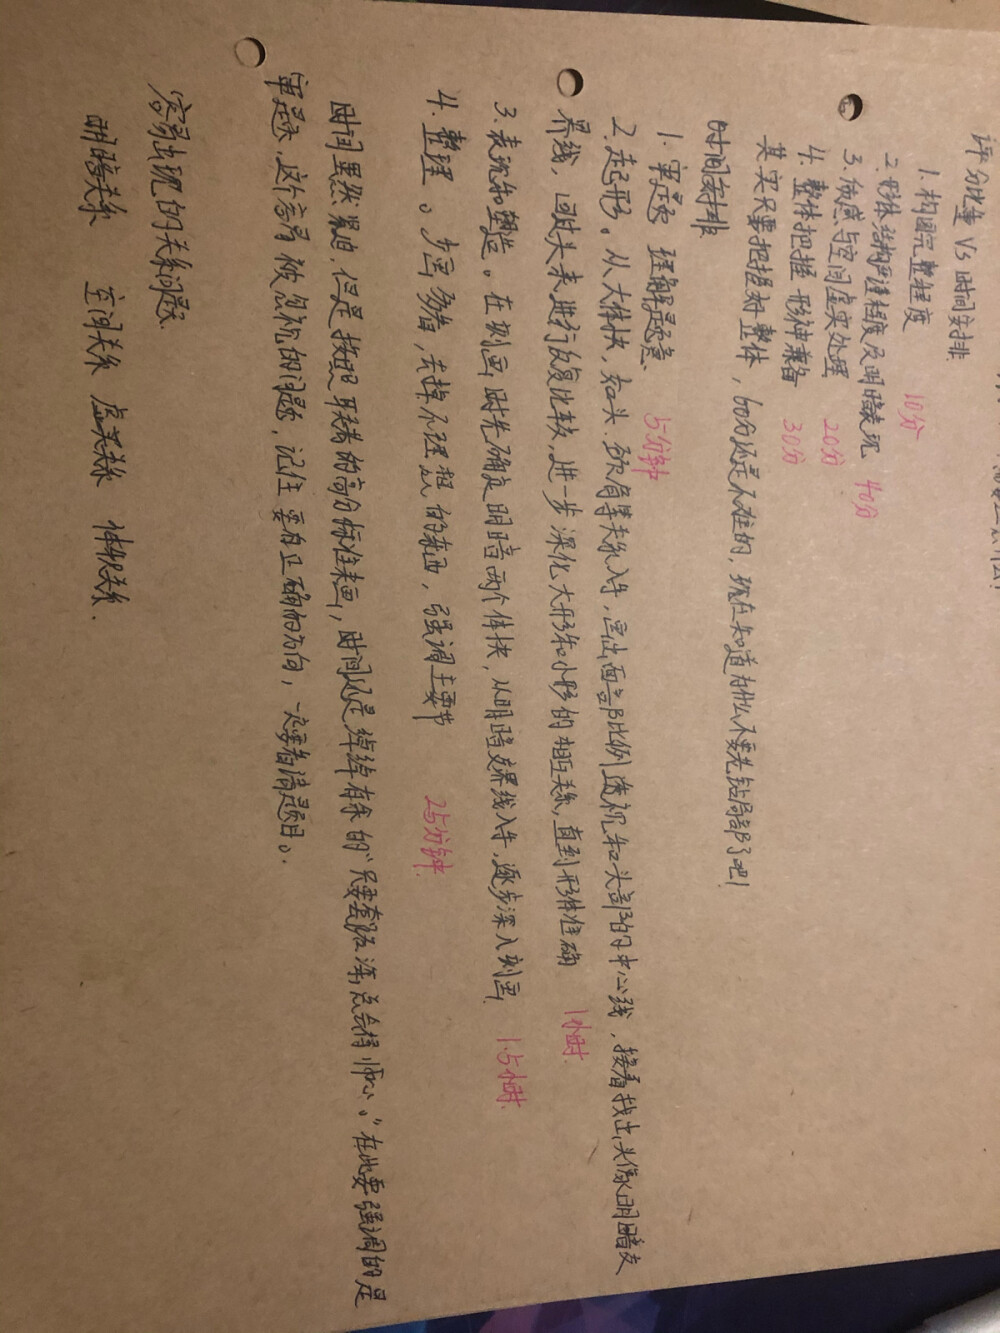 评分比重 VS 时间安排
1. 构图完整程度 10分
2. 形体结构严谨程度及明暗表现 40分
3. 质感与空间虚实处理 20分
4. 整体把握 形神兼备 30分
其实只要把握好整体，60分还是不难的，现在知道为什么不要先钻局部了吧！
时间安排
1. 审题 理解题意 5分钟
2. 起形。从大体块，如头、颈、肩等关系入手，画出面部比例透视和头部的中心线，接着找出头像明暗交
界线，回过头来进行反复比较，进一步深化大形和小形的相互关系，直到形体准确 1小时.
3. 表现和塑造。在刻画时先确定明暗两个体块，从明暗交界线入手，逐步深入刻画. 1.5小时.
4. 整理。少画多看，去掉不理想的东西，强调主要节 25分钟.
时间虽然紧迫，但是按照联考的高分标准来画，时间还是绰绰有余的“只要套路深，总会得师心。”在此要强调的是
审题，这个容易被忽视的问题，记住要有正确的方向，一定要看清题目。.
容易出现的关系问题.
明暗关系 空间关系 虚实关系 体块关系.